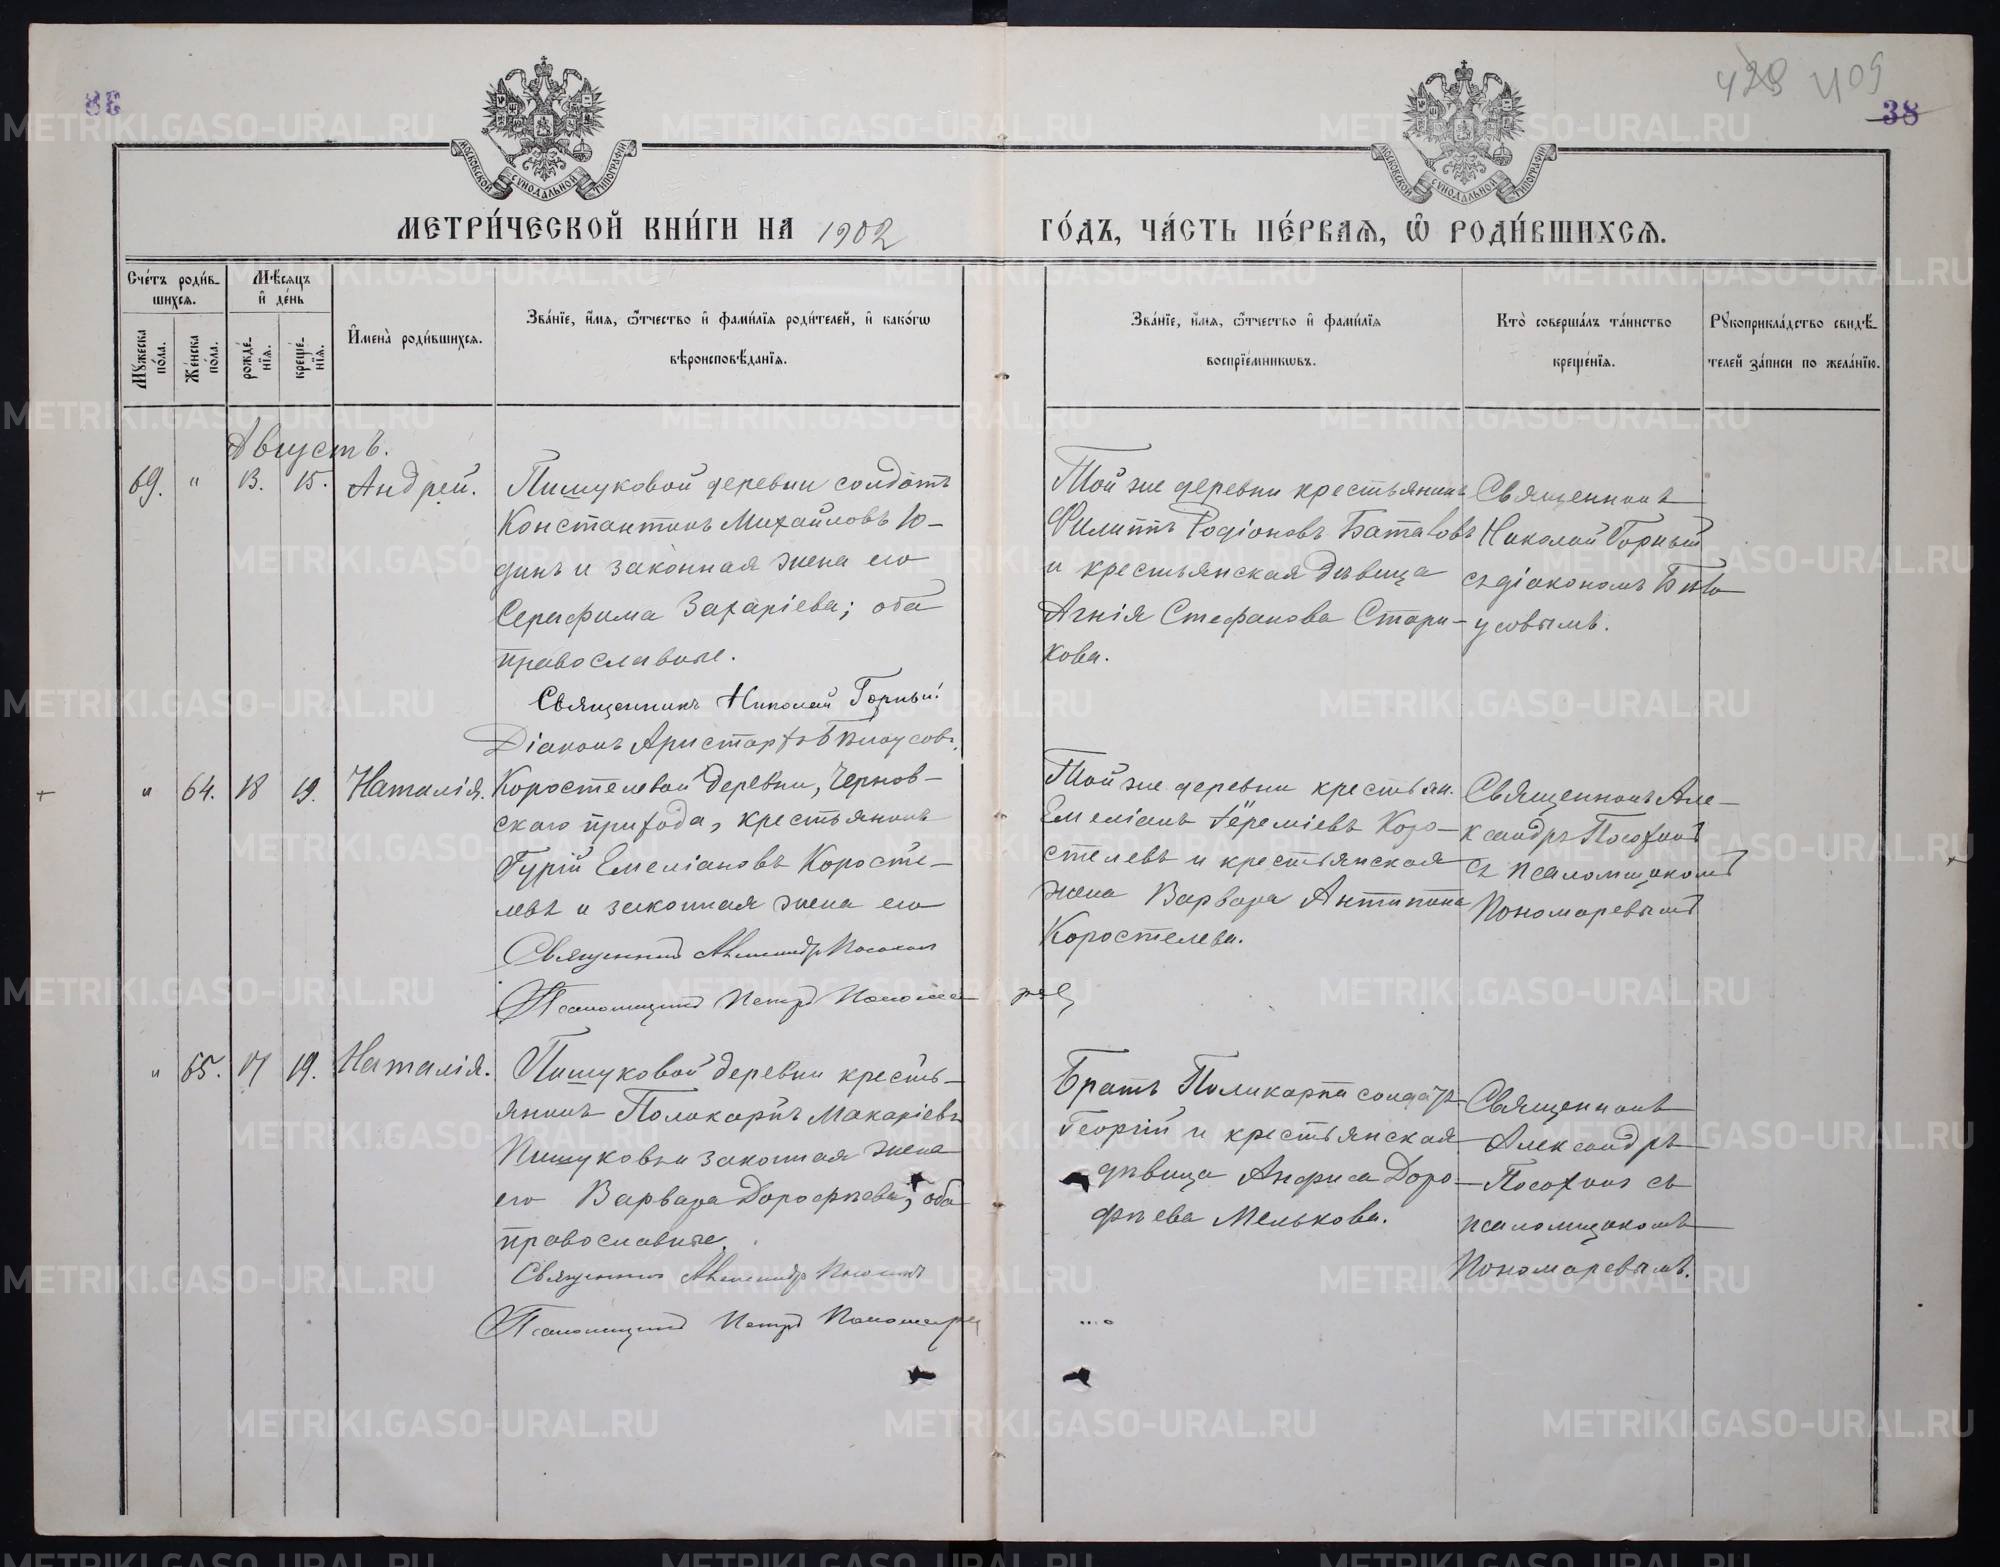 38
429 409
38
МОСКОВСКОЙ СѴНОДАЛЬНОЙ ТИПОГРАФІИ
МОСКОВСКОЙ СѴНОДАЛЬНОЙ ТИПОГРАФІИ
МЕТРИ́ЧЕСКОЙ КНИ́ГИ НА 1902
ГО́ДЪ, ЧА́СТЬ ПЕ́РВАѦ, Ѡ РОДИ́ВШИХСѦ.
Сче́тъ роди́в-
шихсѧ.
Мужеска по́ла.
Же́нска по́ла.
Мѣ́сяцъ
и де́нь
рожде́-
нїѧ.
креще́-
нїѧ.
Имена̀ роди́вшихсѧ.
Зва́нїе, и́мѧ, ѻ́тчество и фами́лїѧ роди́телей, и како́гѡ
вѣроисповѣ́данїѧ.
Зва́нїе, и́мѧ, ѻ́тчество и фами́лїѧ
воспрїе́мникѡвъ.
Кто̀ соверша́лъ та́инство
креще́нїѧ.
Рукоприкла́дство свидѣ́-
телей за́писи по жела́нїю.
Августъ.
69. " 13. 15. Андрей.
Пишуковой деревни солдатъ
Константинъ Михайловъ Ю-
динъ и законная жена его
Серафима Захаріева; оба
православные.
Священникъ Николай Горный
Діаконъ Аристархъ Бѣлоусовъ.
Той же деревни крестьянинъ
Филиппъ Родіоновъ Баталовъ
и крестьянская дѣвица
Агнія Стефанова Стари-
кова.
Священникъ
Николай Горный
съ діакономъ Бѣло-
усовымъ.
" 64. 18 19. Наталія.
Коростелевой деревни, Чернов-
скаго прихода, крестьянинъ
Гурій Емеліановъ Коросте-
левъ и законная жена его
Священникъ Александръ Посохинъ
Псаломщикъ Петръ Пономаревъ
Той же деревни крестьян.
Емеліанъ Іереміевъ Коро-
стелевъ и крестьянская
жена Варвара Антипина
Коростелева.
Священникъ Але-
ксандръ Посохинъ
съ псаломщикомъ
Пономаревымъ
" 65. 17 19. Наталія.
Пишуковой деревни кресть-
янинъ Поликарпъ Макаріевъ
Пишуковъ и законная жена
его Варвара Дорофѣева; оба
православные.
Священникъ Александръ Посохинъ
Псаломщикъ Петръ Пономарев
Братъ Поликарпа солдатъ
Георгій и крестьянская
дѣвица Анфиса Доро-
фѣева Мелькова.
Священникъ
Александръ
Посохинъ съ
псаломщикомъ
Пономаревымъ.
METRIKI.GASO-URAL.RU